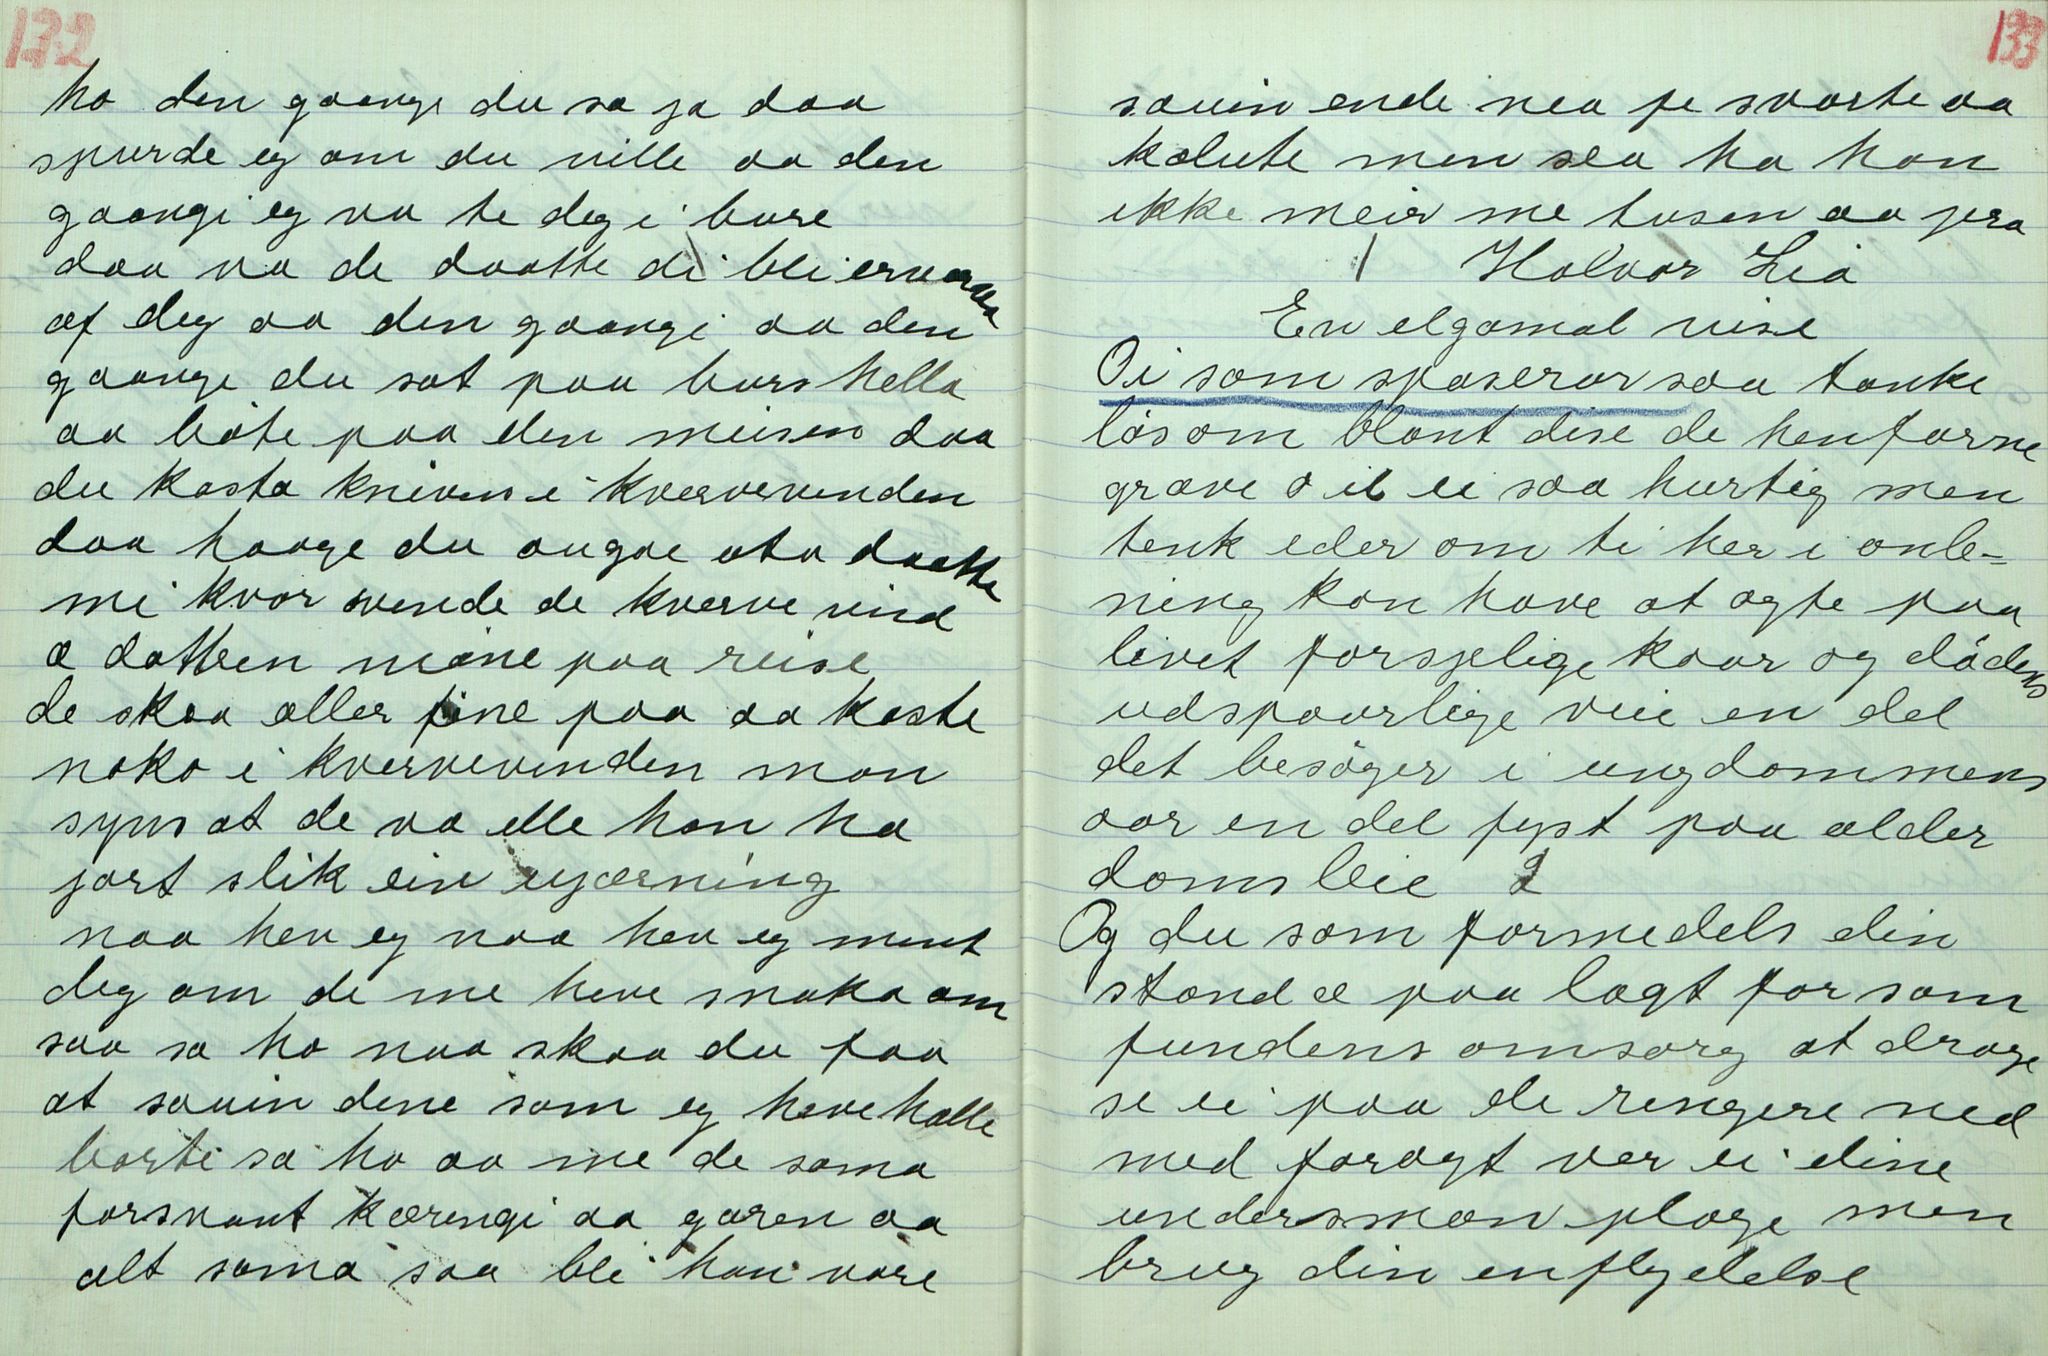 132
ho den gaangi du sa ja daa
spurde eg om du ville aa den
gaangi eg va te deg i bure
daa va de daatte di blei
af deg aa den gaangi aa den
gaangi du sat paa burs hella
aa böte paa den meisen daa
du kasta kniven i kvervevinden
daa haage du augae ota daatte
mi kvor svende de kverve vind
æ dotteren mine paa reise
de skaa aller fine paa aa kaste
noko i kvervevinden mon
syns at de va elle han ha
jort slik ein ugjærning
naa hev eg naa hev eg mint
deg om de me heve snaka om
saa sa ho naa skaa du faa
at sauin dene som eg heve halle
borti sa ho aa me de soma
forsvant kærengi aa garen aa
alt soma saa blei han vare
133
sauin ende nea fe svarte aa
kolute men sea ha han
ikke meir me tusen aa jera
1 Halvor Lia
En elgamal vise
O i som spaserar saa tanke
lös om blant dise de henfarne
grave o il ei saa hurtig men
tenk eder om ti her i anle-
ning kan have at agte paa
livet forsjelige kaar og dödens
udspaarlige veie en del
det besöger i ungdommens
aar en del fyst paa alder
doms leie 2
Og du som formedels din
stand æ paa lagt for som
fundens omsorg at drage
se ei paa de ringere ned
med foragt ver ei dine
undersmæn plage men
brug din enflydelse